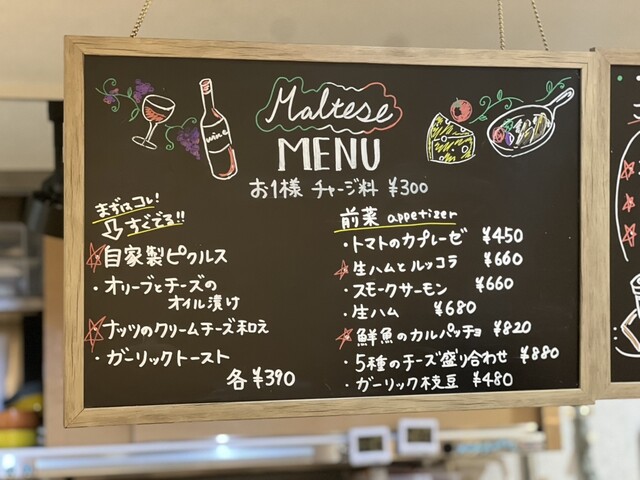 wine
Maltese
MENU
お1様 チャージ料 ¥300
まずはコレ!
すぐでる!!
自家製ピクルス
・オリーブとチーズの
オイル漬け
ナッツのクリームチーズ和え
・ガーリックトースト
各 ¥390
前菜 appetizer
・トマトのカプレーゼ ¥450
生ハムとルッコラ ¥660
・スモークサーモン ¥660
・生ハム ¥680
鮮魚のカルパッチョ ¥820
・5種のチーズ盛り合わせ ¥880
・ガーリック枝豆 ¥480